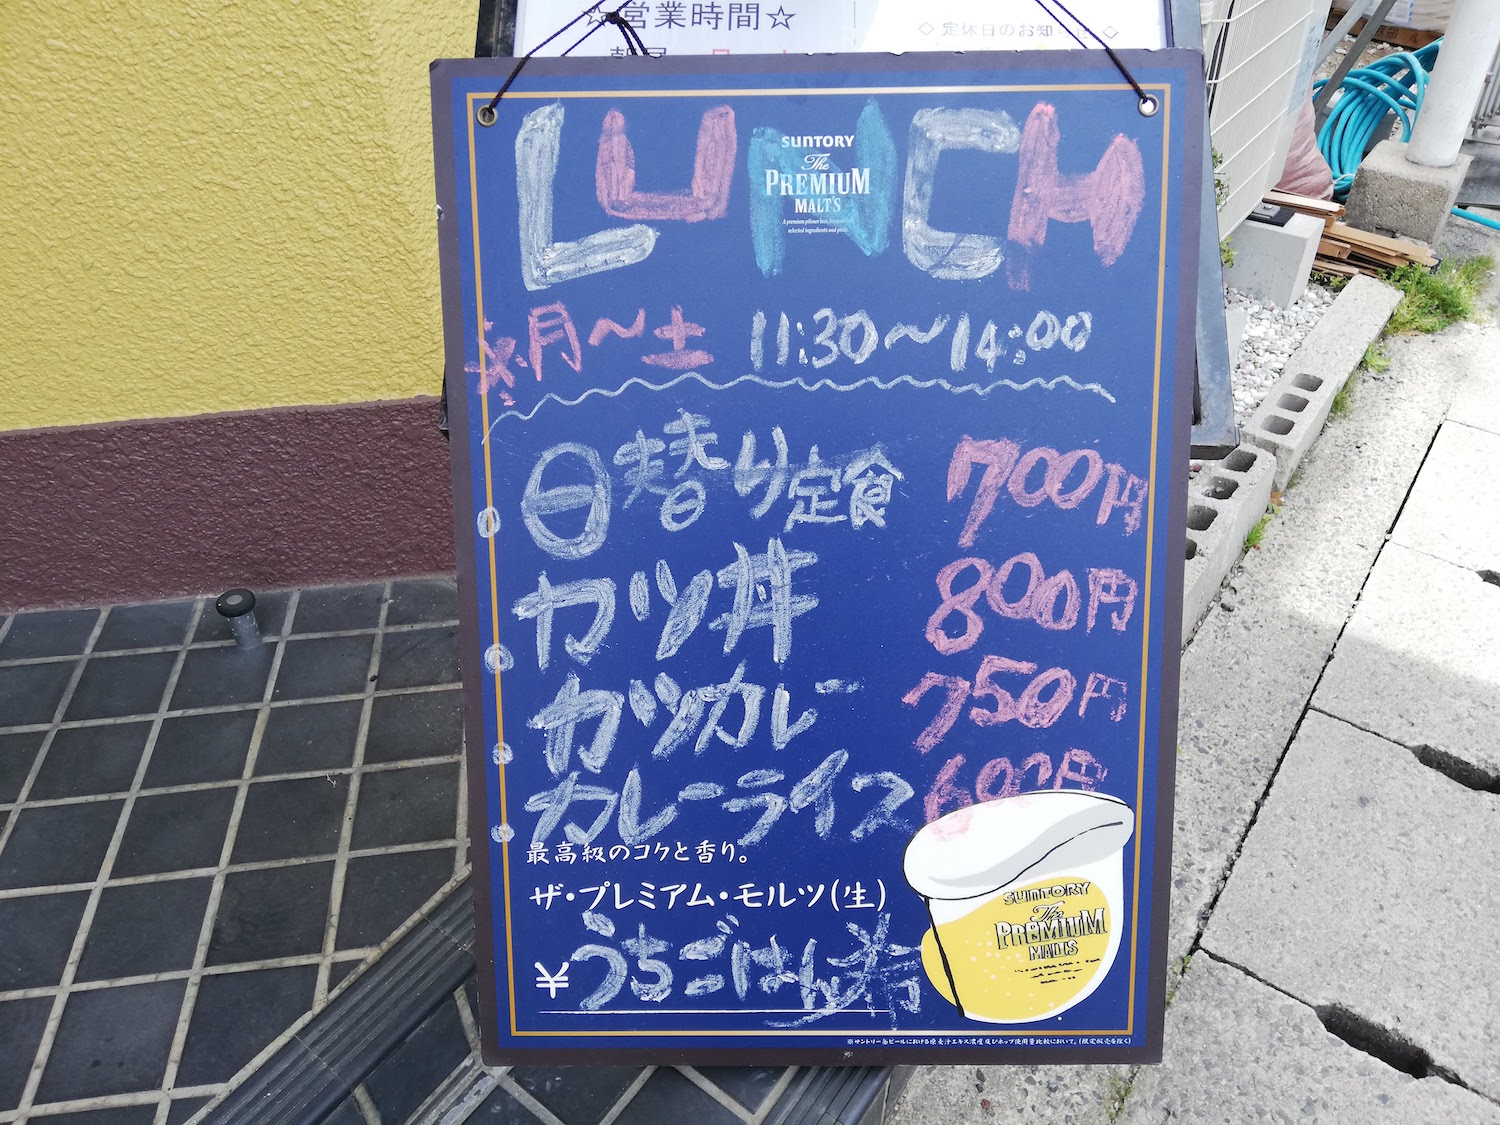 ☆営業時間☆
◇ 定休日のお知らせ ◇
LUNCH
SUNTORY
The
PREMIUM
MALT'S
月〜土 11:30〜14:00
日替り定食 700円
カツ丼 800円
カツカレー 750円
カレーライス 600円
最高級のコクと香り。
ザ・プレミアム・モルツ(生)
¥ うちごはん
SUNTORY
The
PREMIUM
MALT'S
※サントリー缶ビールにおける原麦汁エキス濃度及びホップ使用量比較において。(限定販売を除く)